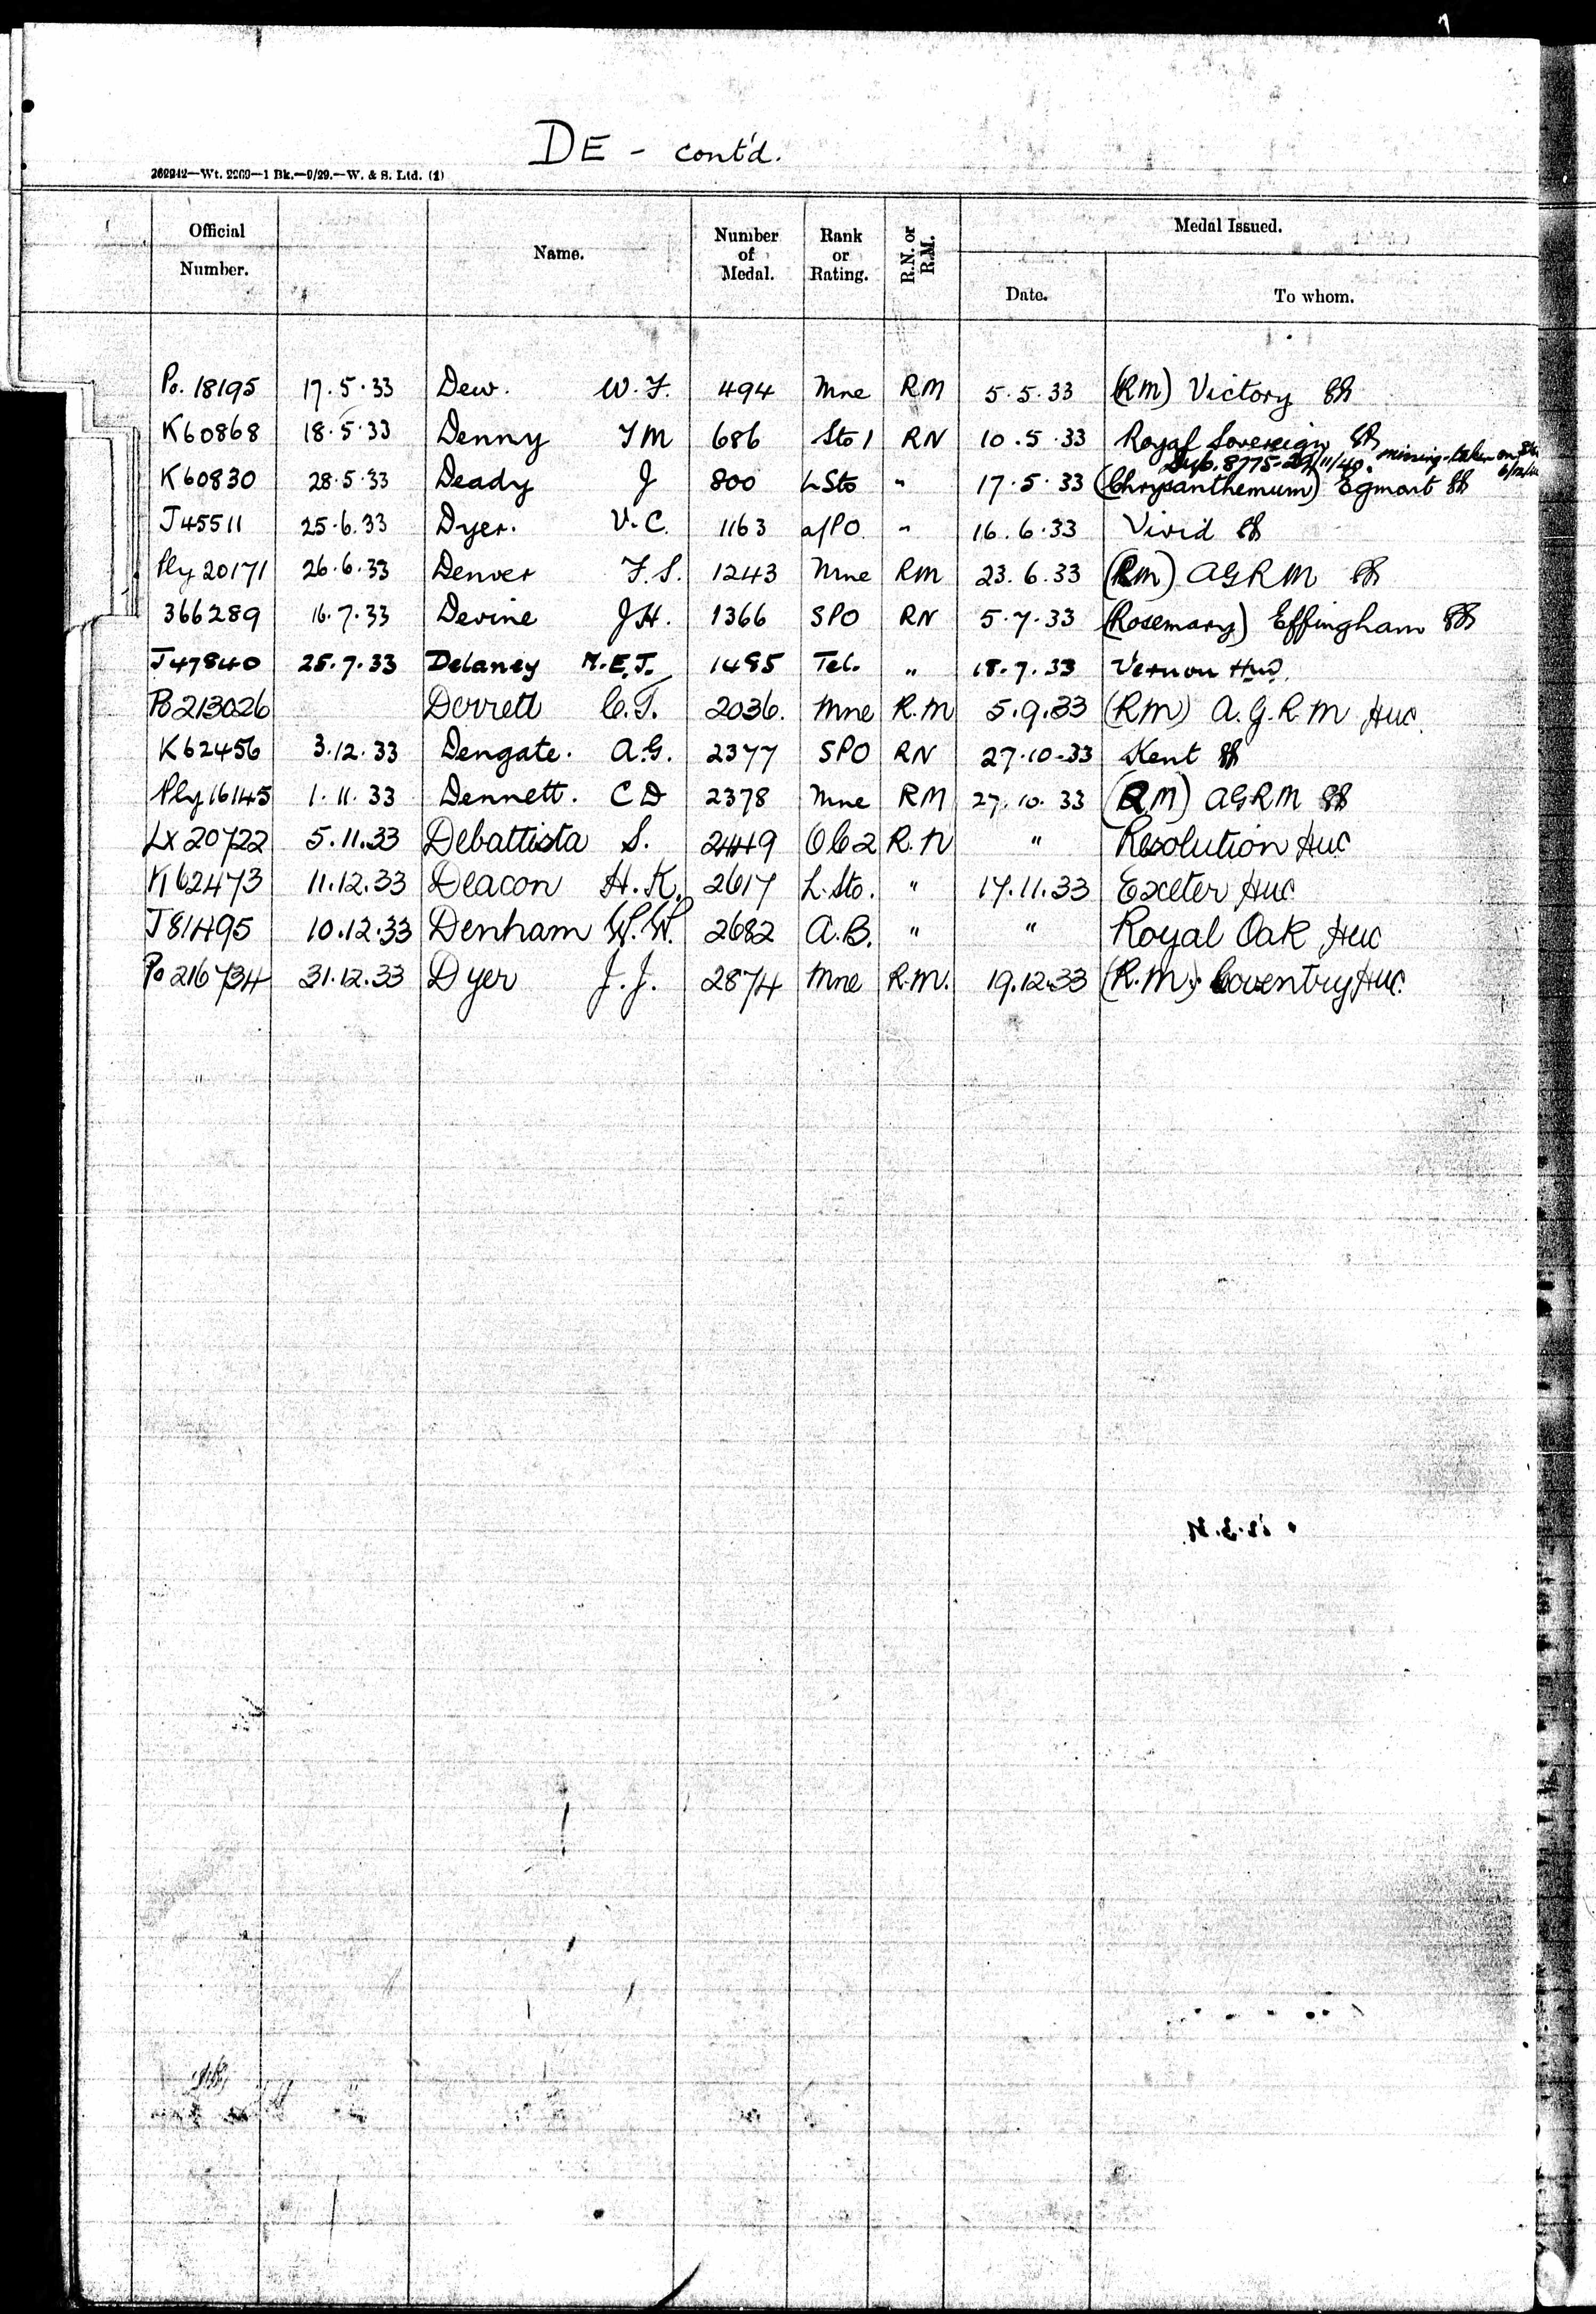 DE - cont'd.
262942—Wt. 2260—1 Bk.—9/29.—W. & S. Ltd. (1)
Official Number. Name. Number of Medal. Rank or Rating. R.N. or R.M. Medal Issued.
Date. To whom.
Po. 18195 17.5.33 Dew. W.F. 494 Mne RM 5.5.33 (RM) Victory
K60868 18.5.33 Denny T M 686 Sto 1 RN 10.5.33 Royal Sovereign
Dup. 8775-29/11/40. missing taken on
K60830 28.5.33 Deady J 800 LSto " 17.5.33 (Chrysanthemum) Egmont
J45511 25.6.33 Dyer. V.C. 1163 a/PO. " 16.6.33 Vivid
Ply 20171 26.6.33 Denver F.S. 1243 Mne RM 23.6.33 (RM) AGRM
366289 16.7.33 Devine JH. 1366 SPO RN 5.7.33 (Rosemary) Effingham
J47840 25.7.33 Delaney E.J. 1485 Tel. " 18.7.33 Vernon
Po 213026 Derrett C.T. 2036. Mne R.M 5.9.33 (RM) A.G.R.M Huc.
K62456 3.12.33 Dengate. A.G. 2377 SPO RN 27.10.33 Kent
Ply 16145 1.11.33 Dennett. C D 2378 Mne RM 27.10.33 (RM) AGRM
Lx 20722 5.11.33 Debattista S. 2449 OC2 R.N " Resolution Huc
K62473 11.12.33 Deacon H.K. 2617 L.Sto. " 17.11.33 Exeter Huc
J81495 10.12.33 Denham W.W. 2682 A.B. " " Royal Oak Huc
Po 216734 31.12.33 Dyer J.J. 2874 Mne R.M. 19.12.33 (R.M) Coventry Huc.